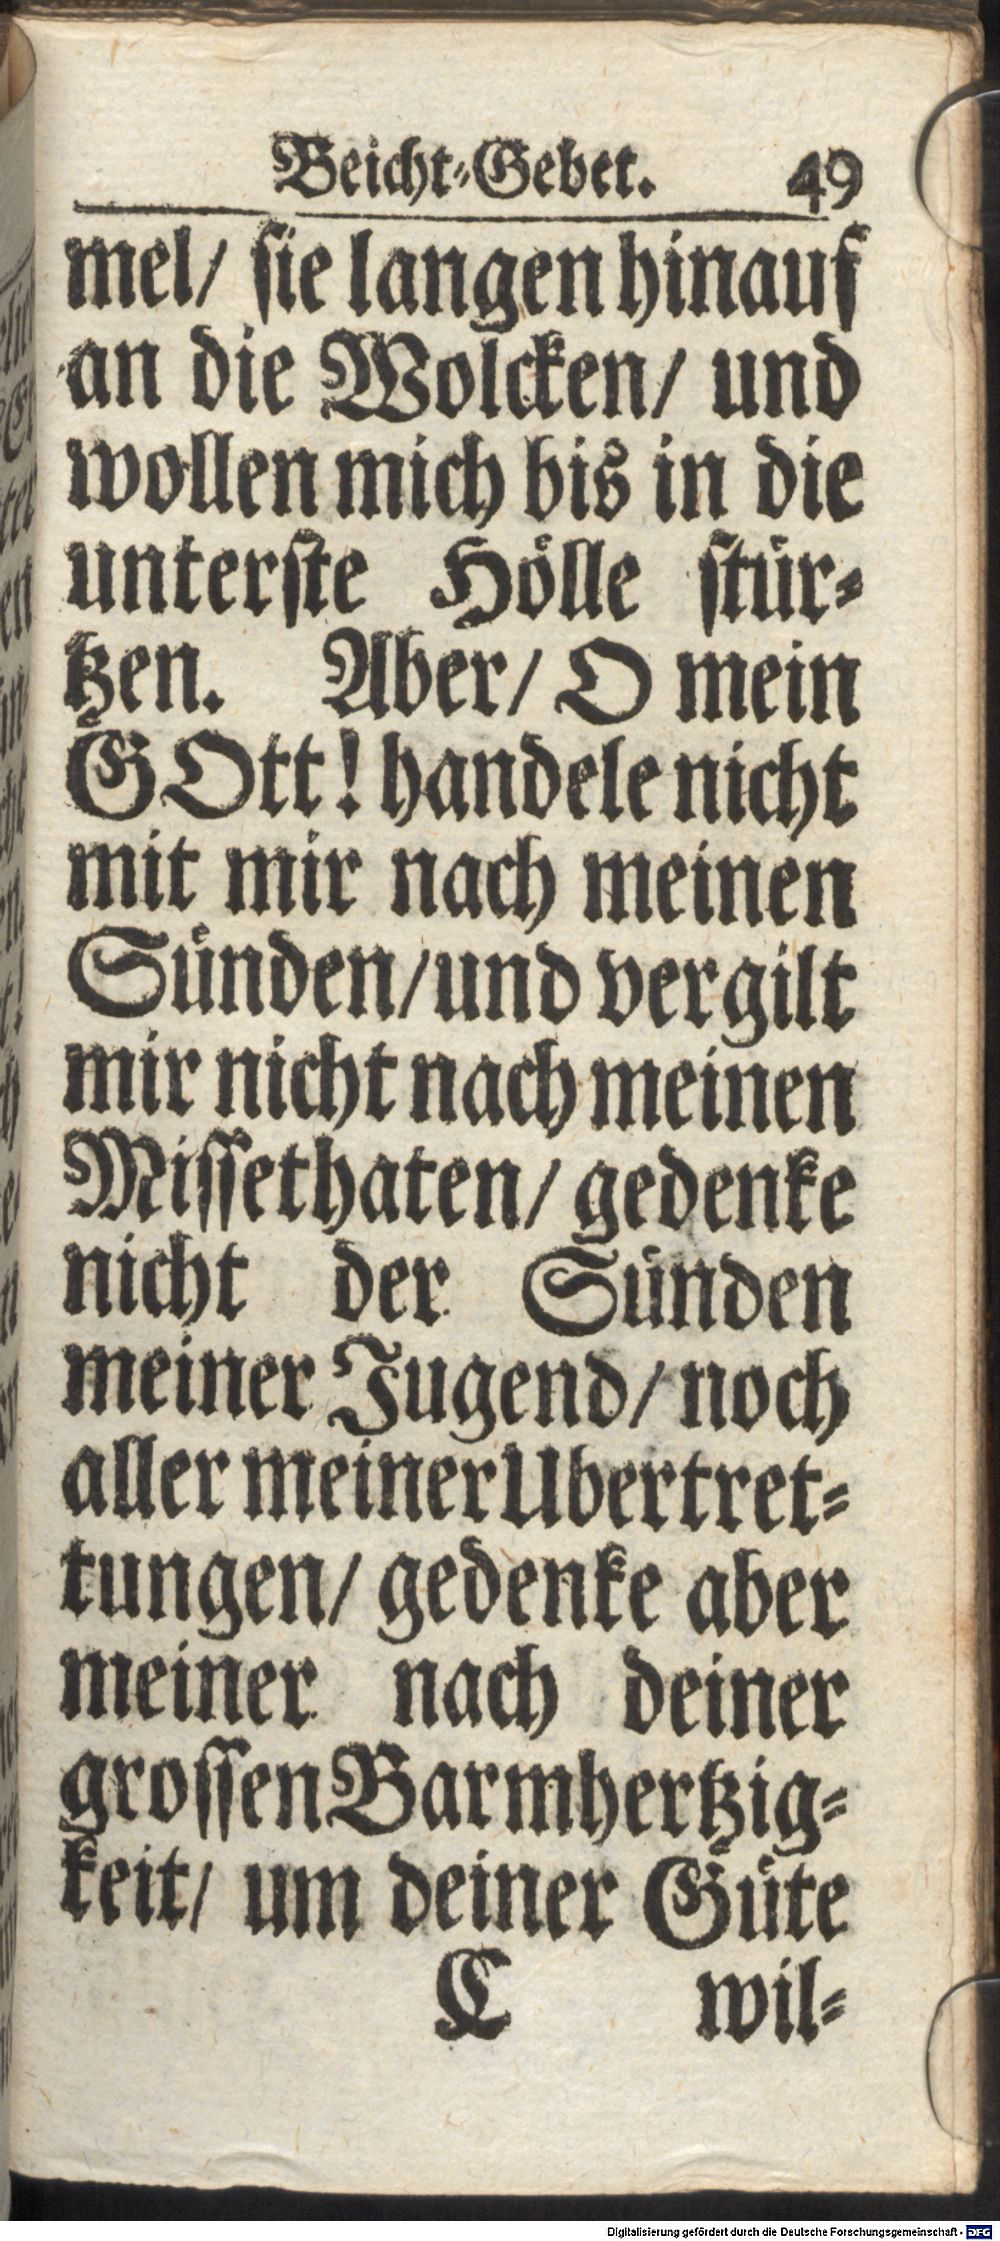 Beicht-Gebet. 49
mel/ sie langen hinauf
an die Wolcken/ und
wollen mich bis in die
unterste Hölle stür-
tzen. Aber/ O mein
GOtt! handele nicht
mit mir nach meinen
Sünden/und vergilt
mir nicht nach meinen
Missethaten/ gedenke
nicht der Sünden
meiner Jugend/ noch
aller meiner Ubertret-
tungen/ gedenke aber
meiner nach deiner
grossen Barmhertzig-
keit/ um deiner Güte
C wil-
Digitalisierung gefördert durch die Deutsche Forschungsgemeinschaft - DFG